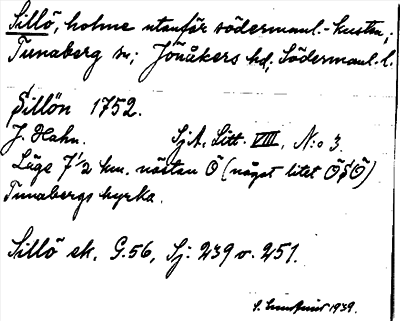 Sillö, holme utanför södermanl.-kusten;
Tunaberg sn; Jönåkers hd; Södermanl. l.
Sillön 1752.
J. Hahn. SjA, Litt. VIII, N:o 3.
Läge 7 1/2 km. nästan Ö (något litet ÖSÖ)
Tunabergs kyrka.
Sillö ek. G.56, Sj: 239 v. 251.
1939.